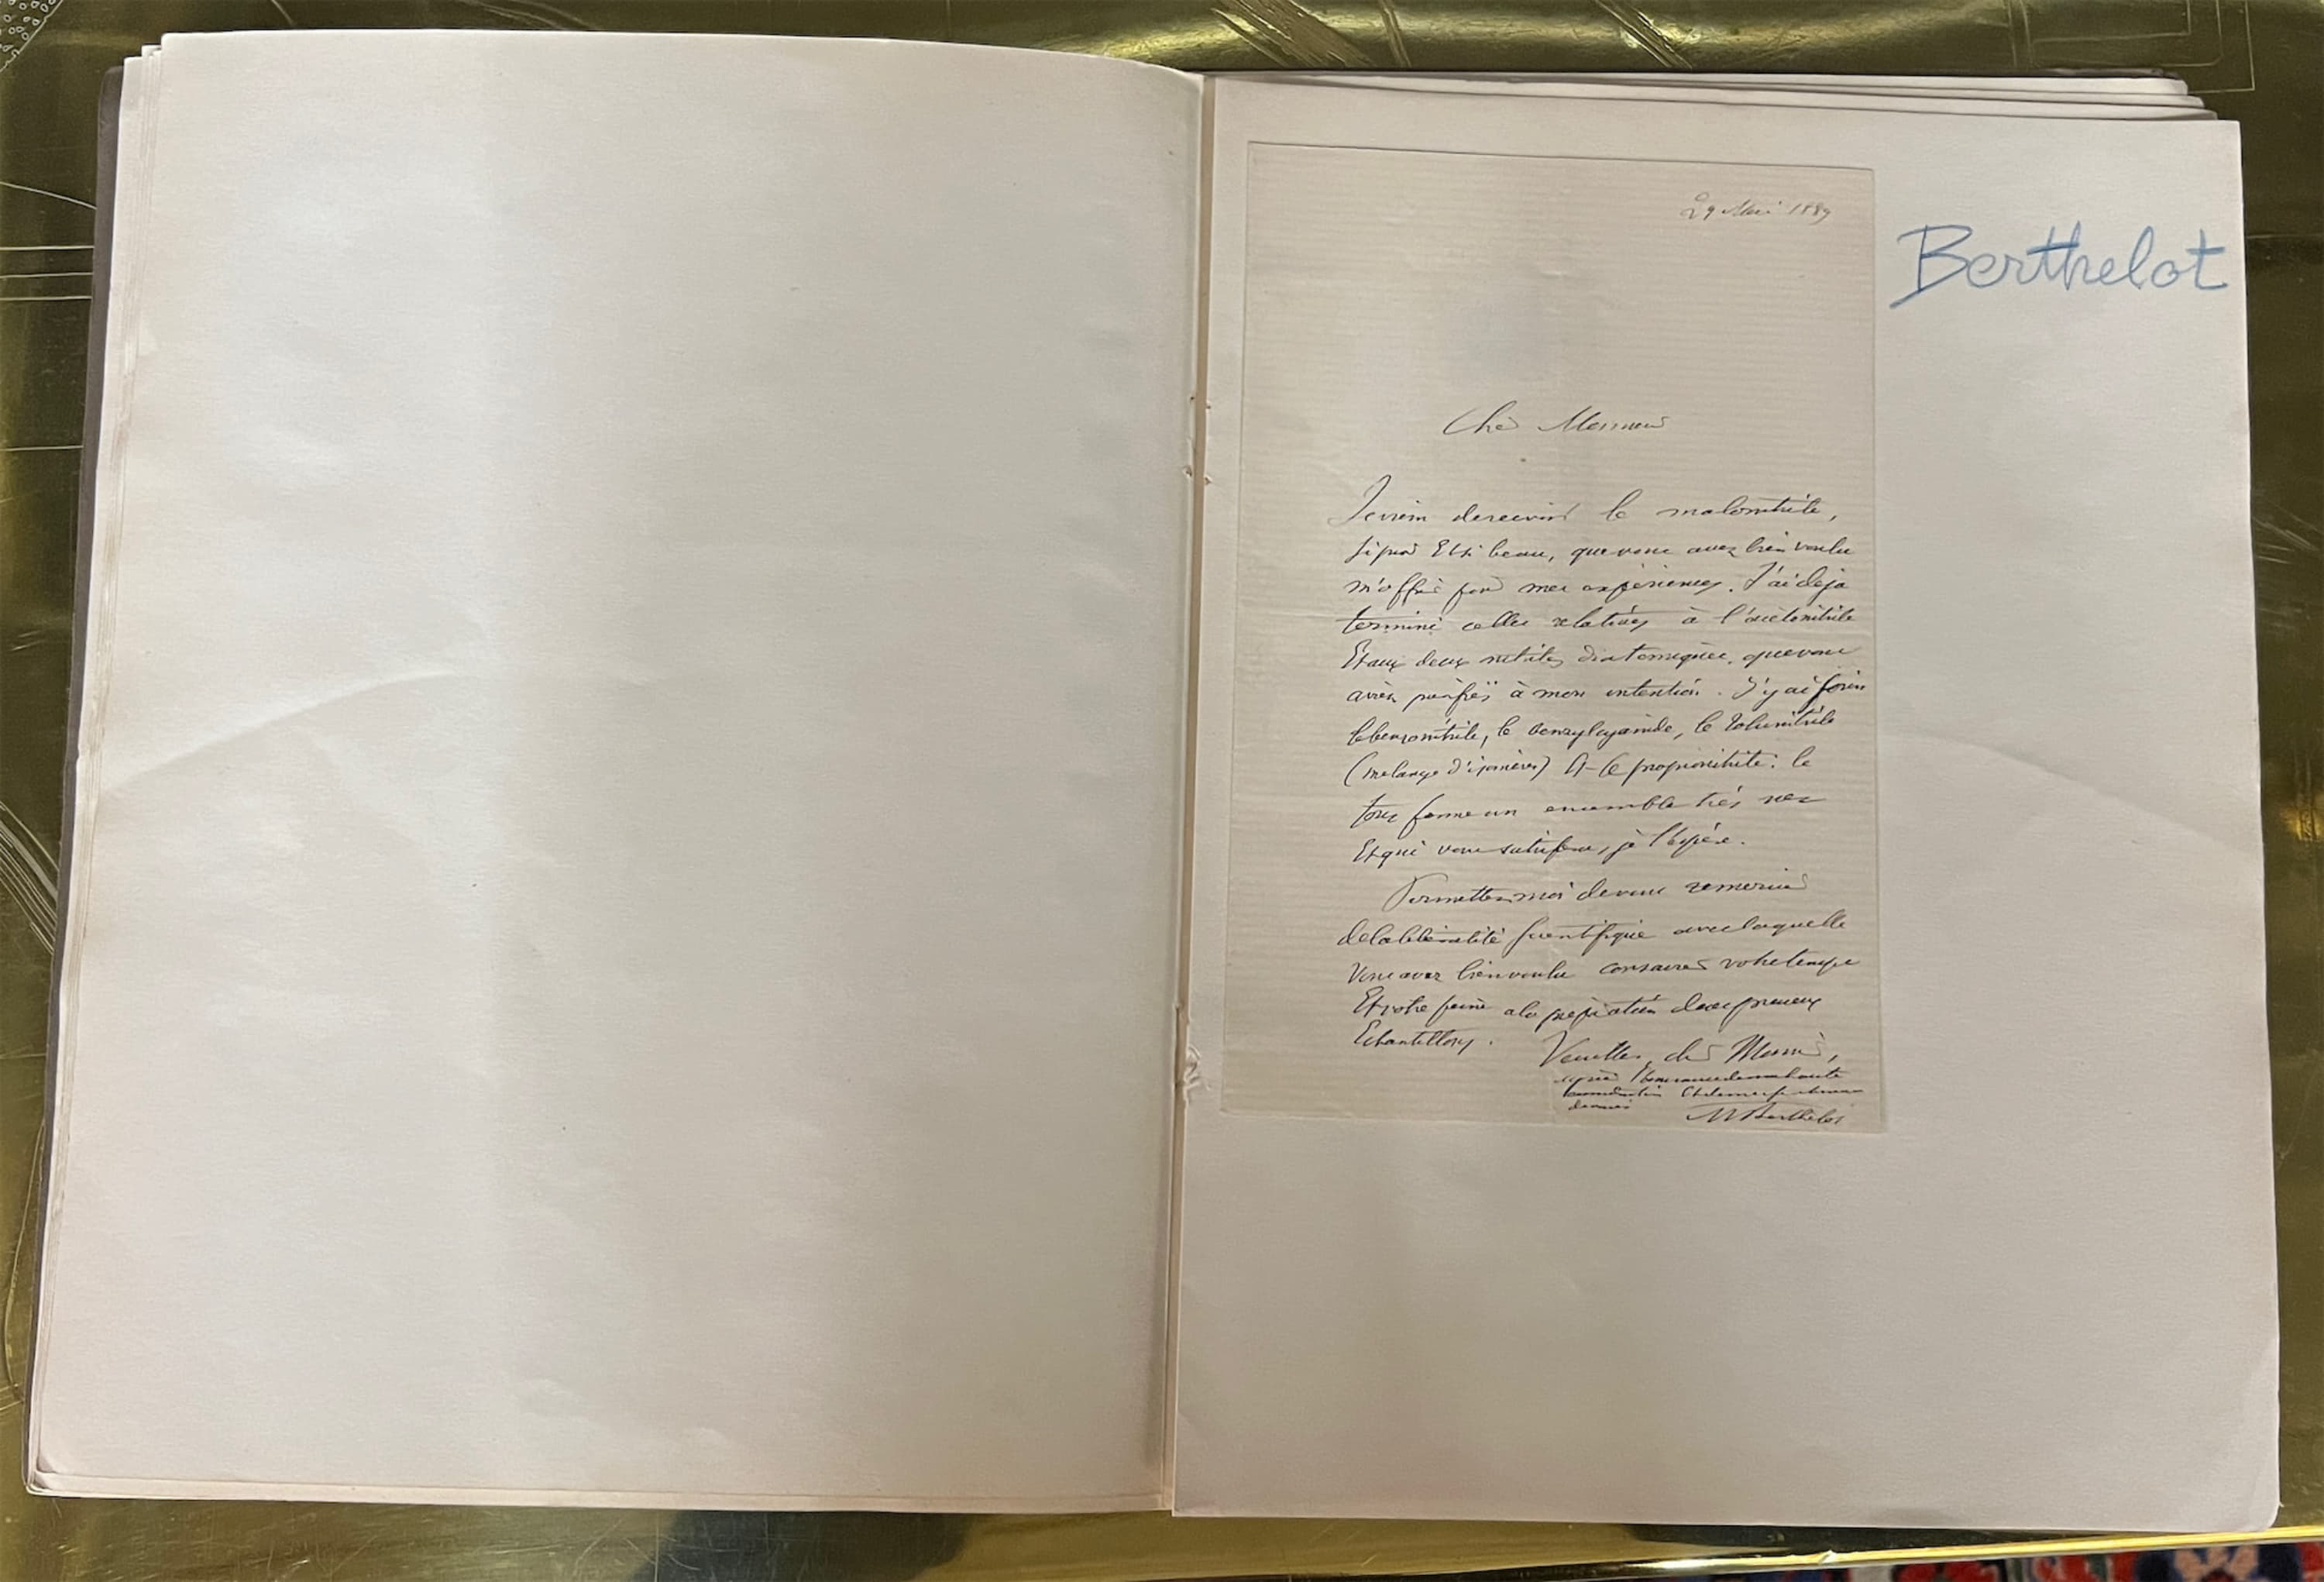 29 Mai 1889
Berthelot
Cher Monsieur
Je viens de recevoir le malonitrile,
si pur et si beau, que vous avez bien voulu
m'offrir pour mes expériences. J'ai deja
terminé celles relatives à l'acétonitrile
Et aux deux nitriles diatomiques, que vous
aviez purifiés à mon intention. J'y ai join
le benzonitrile, le benzylcyanide, le tolunitrile
(melange d'isomères) et le propionitrile: le
tout forme un ensemble très
Et qui vous satisfera, je l'espère.
Permettez moi de vous remercier
de la libéralité scientifique avec laquelle
Vous avez bien voulu consacrer votre temps
Et votre peine a la préparation de ces précieux
Echantillons.
Veuillez, cher Monsieur,
agréer l'assurance de ma haute
consideration Et de mes
devoués
M Berthelot